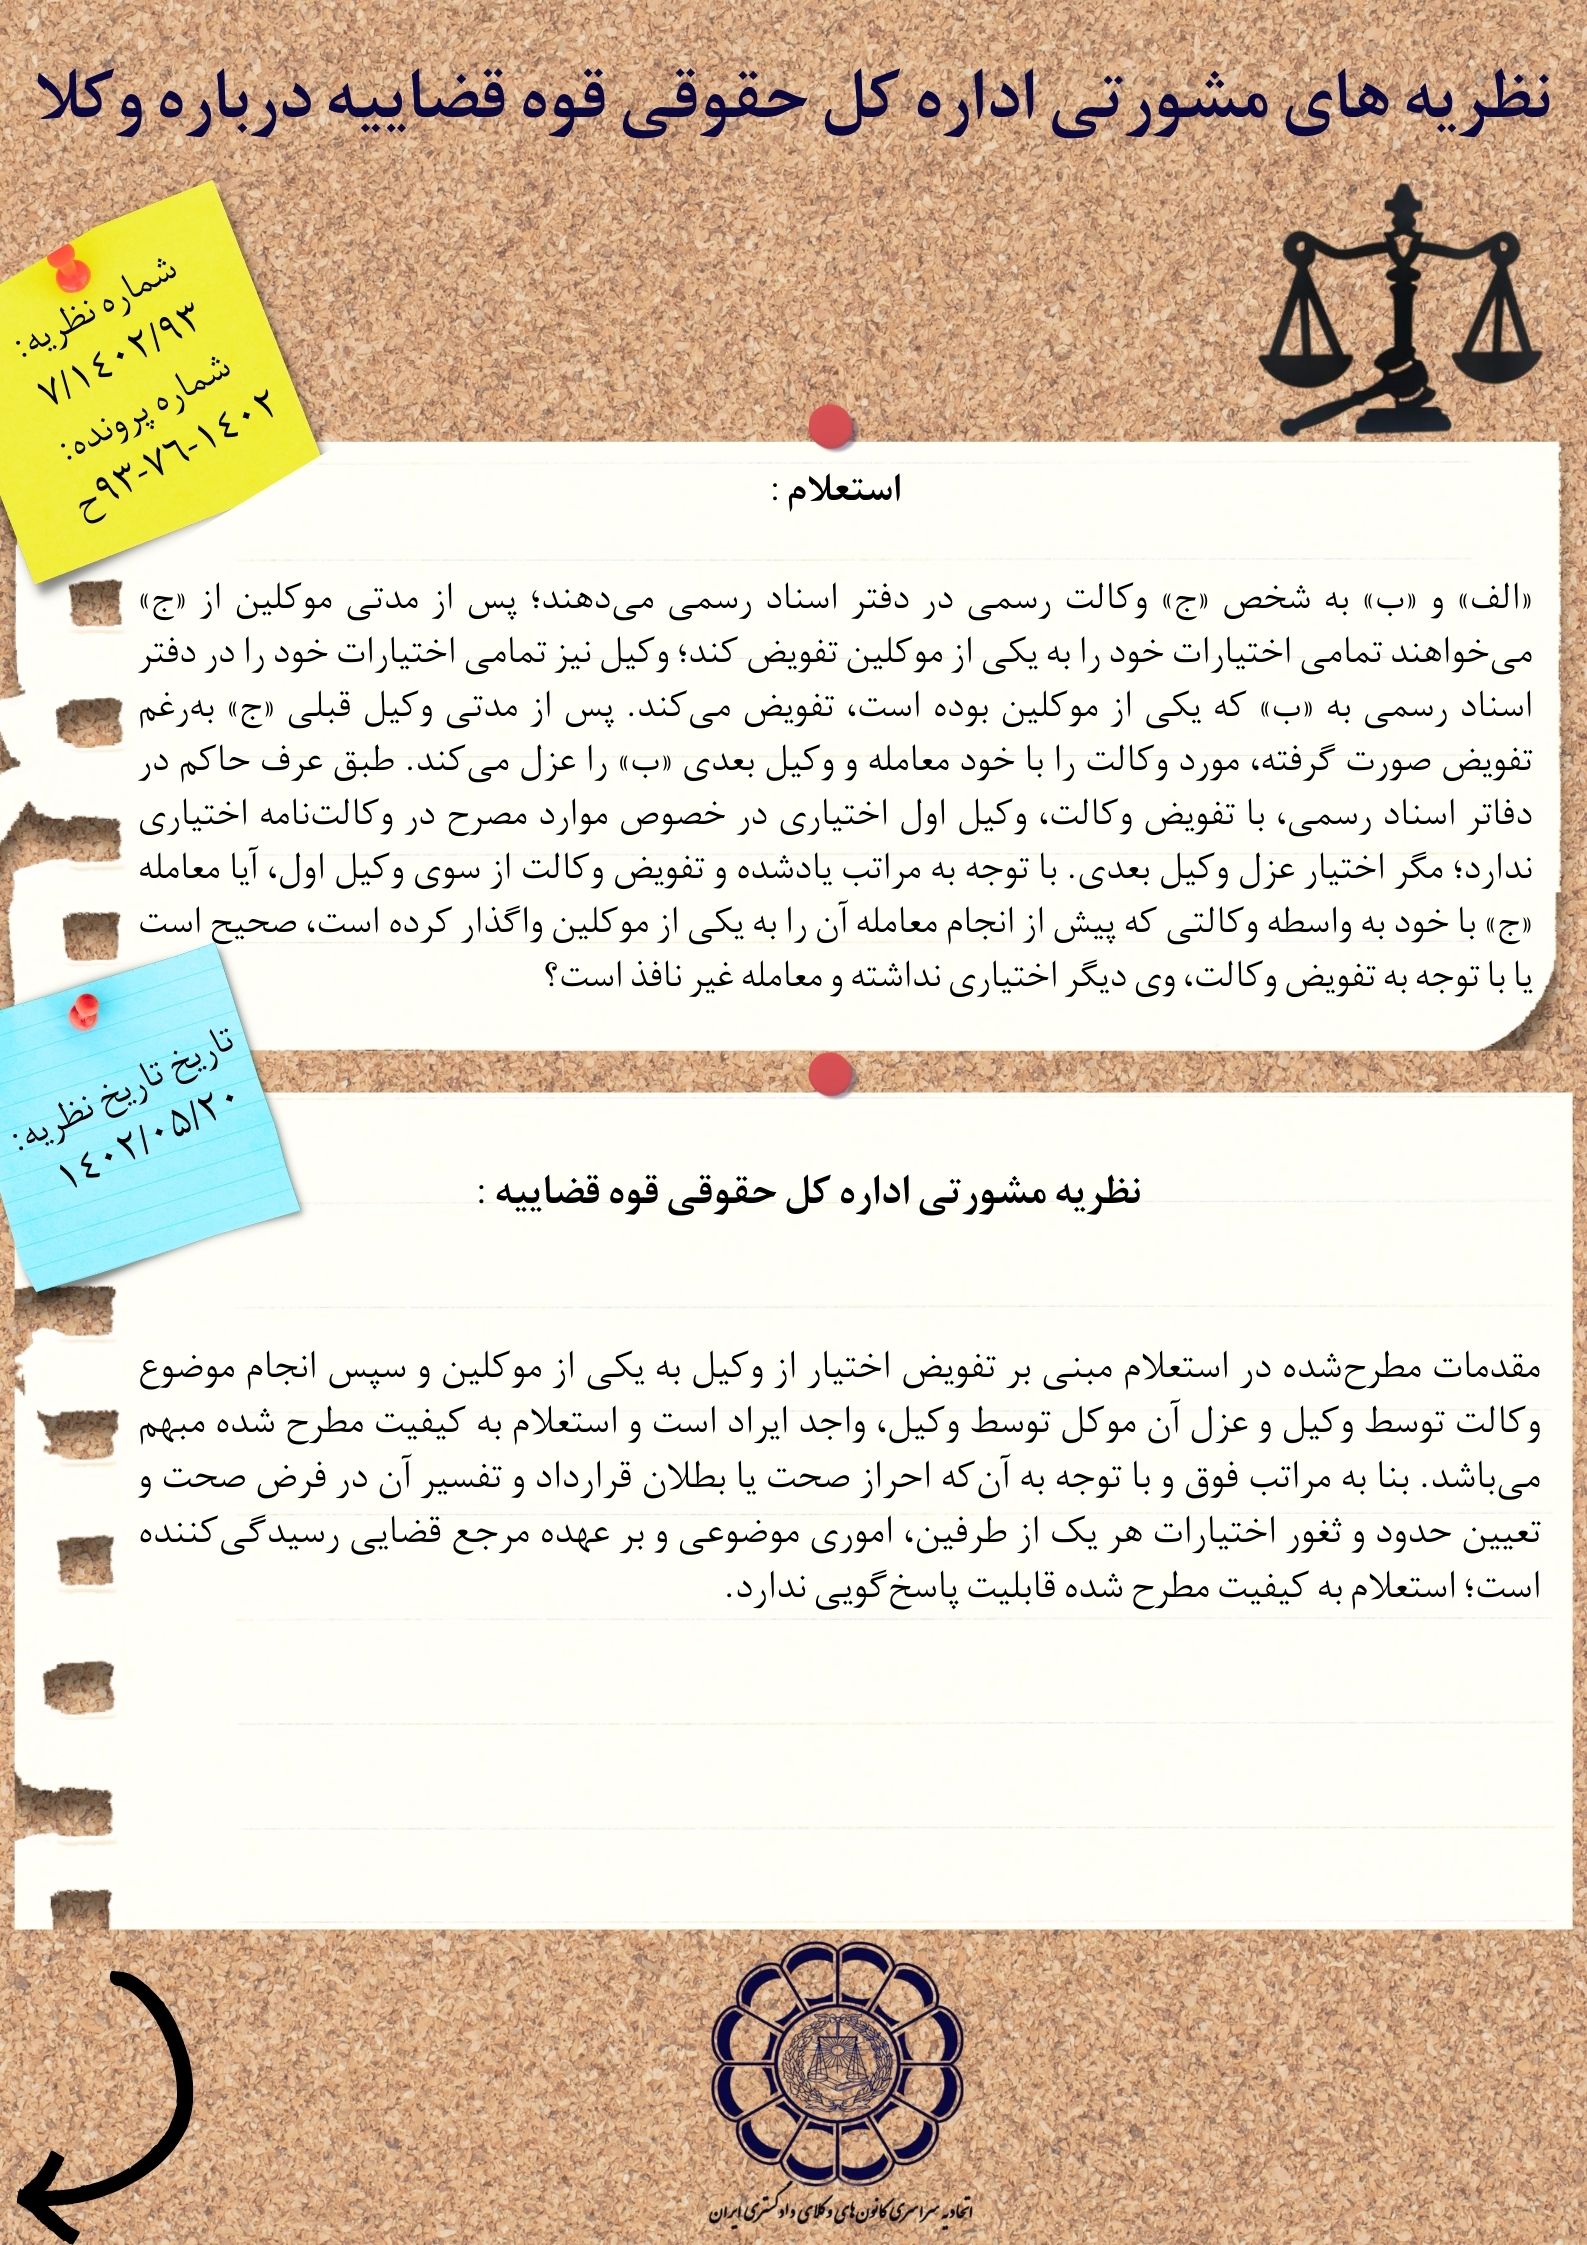 نظریه های مشورتی اداره کل حقوقی قوه قضاییه درباره وکلا
شماره نظریه:
۷/۱٤۰۲/۹۳
شماره پرونده:
۱٤۰۲-۷٦-۹۳ح
استعلام :
«الف» و «ب» به شخص «ج» وکالت رسمی در دفتر اسناد رسمی می‌دهند؛ پس از مدتی موکلین از «ج»
می‌خواهند تمامی اختیارات خود را به یکی از موکلین تفویض کند؛ وکیل نیز تمامی اختیارات خود را در دفتر
اسناد رسمی به «ب» که یکی از موکلین بوده است، تفویض می‌کند. پس از مدتی وکیل قبلی «ج» به‌رغم
تفویض صورت گرفته، مورد وکالت را با خود معامله و وکیل بعدی «ب» را عزل می‌کند. طبق عرف حاکم در
دفاتر اسناد رسمی، با تفویض وکالت، وکیل اول اختیاری در خصوص موارد مصرح در وکالت‌نامه اختیاری
ندارد؛ مگر اختیار عزل وکیل بعدی. با توجه به مراتب یادشده و تفویض وکالت از سوی وکیل اول، آیا معامله
«ج» با خود به واسطه وکالتی که پیش از انجام معامله آن را به یکی از موکلین واگذار کرده است، صحیح است
یا با توجه به تفویض وکالت، وی دیگر اختیاری نداشته و معامله غیر نافذ است؟
تاریخ تاریخ نظریه:
۱٤۰۲/۰۵/۲۰
نظریه مشورتی اداره کل حقوقی قوه قضاییه :
مقدمات مطرح‌شده در استعلام مبنی بر تفویض اختیار از وکیل به یکی از موکلین و سپس انجام موضوع
وکالت توسط وکیل و عزل آن موکل توسط وکیل، واجد ایراد است و استعلام به کیفیت مطرح شده مبهم
می‌باشد. بنا به مراتب فوق و با توجه به آن‌که احراز صحت یا بطلان قرارداد و تفسیر آن در فرض صحت و
تعیین حدود و ثغور اختیارات هر یک از طرفین، اموری موضوعی و بر عهده مرجع قضایی رسیدگی‌کننده
است؛ استعلام به کیفیت مطرح شده قابلیت پاسخ‌گویی ندارد.
اتحادیه سراسری کانون‌های وکلای دادگستری ایران